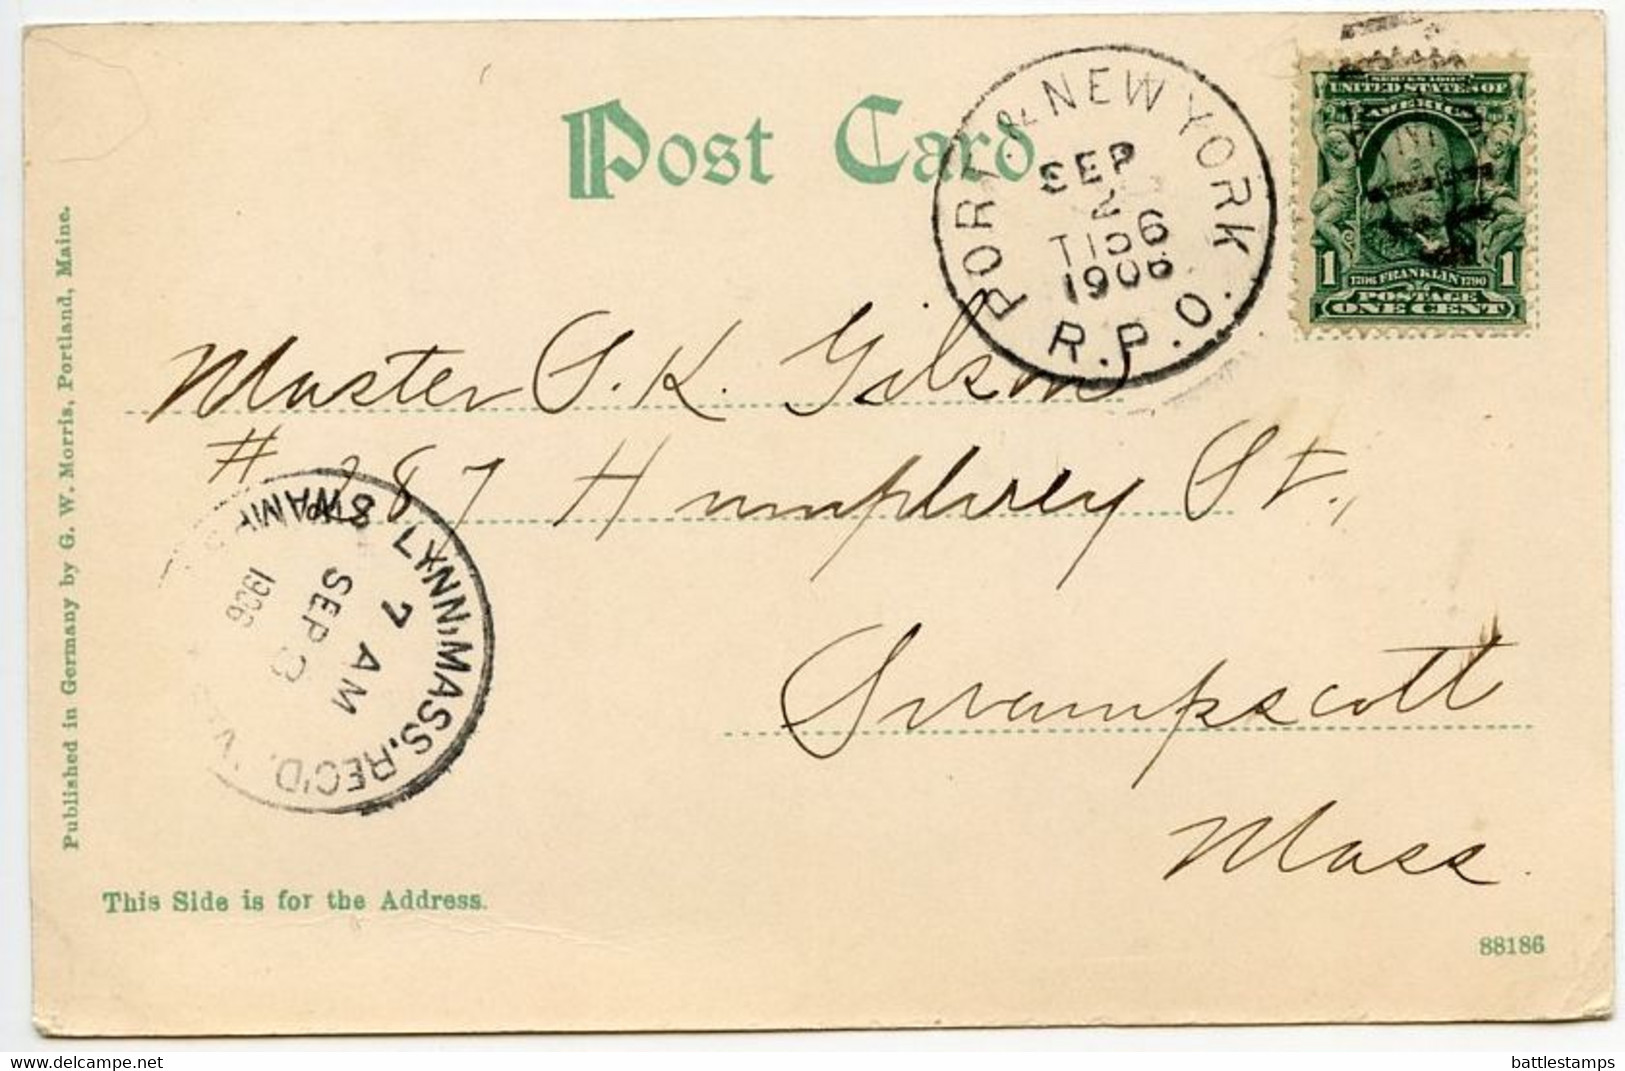 Post Card
PORT. & NEW YORK
SEP
2
TI56
1906
R.P.O.
SERIES 1902
UNITED STATES OF
AMERICA
1 1706 FRANKLIN 1790 1
POSTAGE
ONE CENT
Master S. K. Gilson
# 287 Humphrey St.,
Swampscott
Mass.
LYNN, MASS. REC'D.
7 AM
SEP 3
1906
Published in Germany by G. W. Morris, Portland, Maine.
This Side is for the Address.
88186
www.delcampe.net
battlestamps